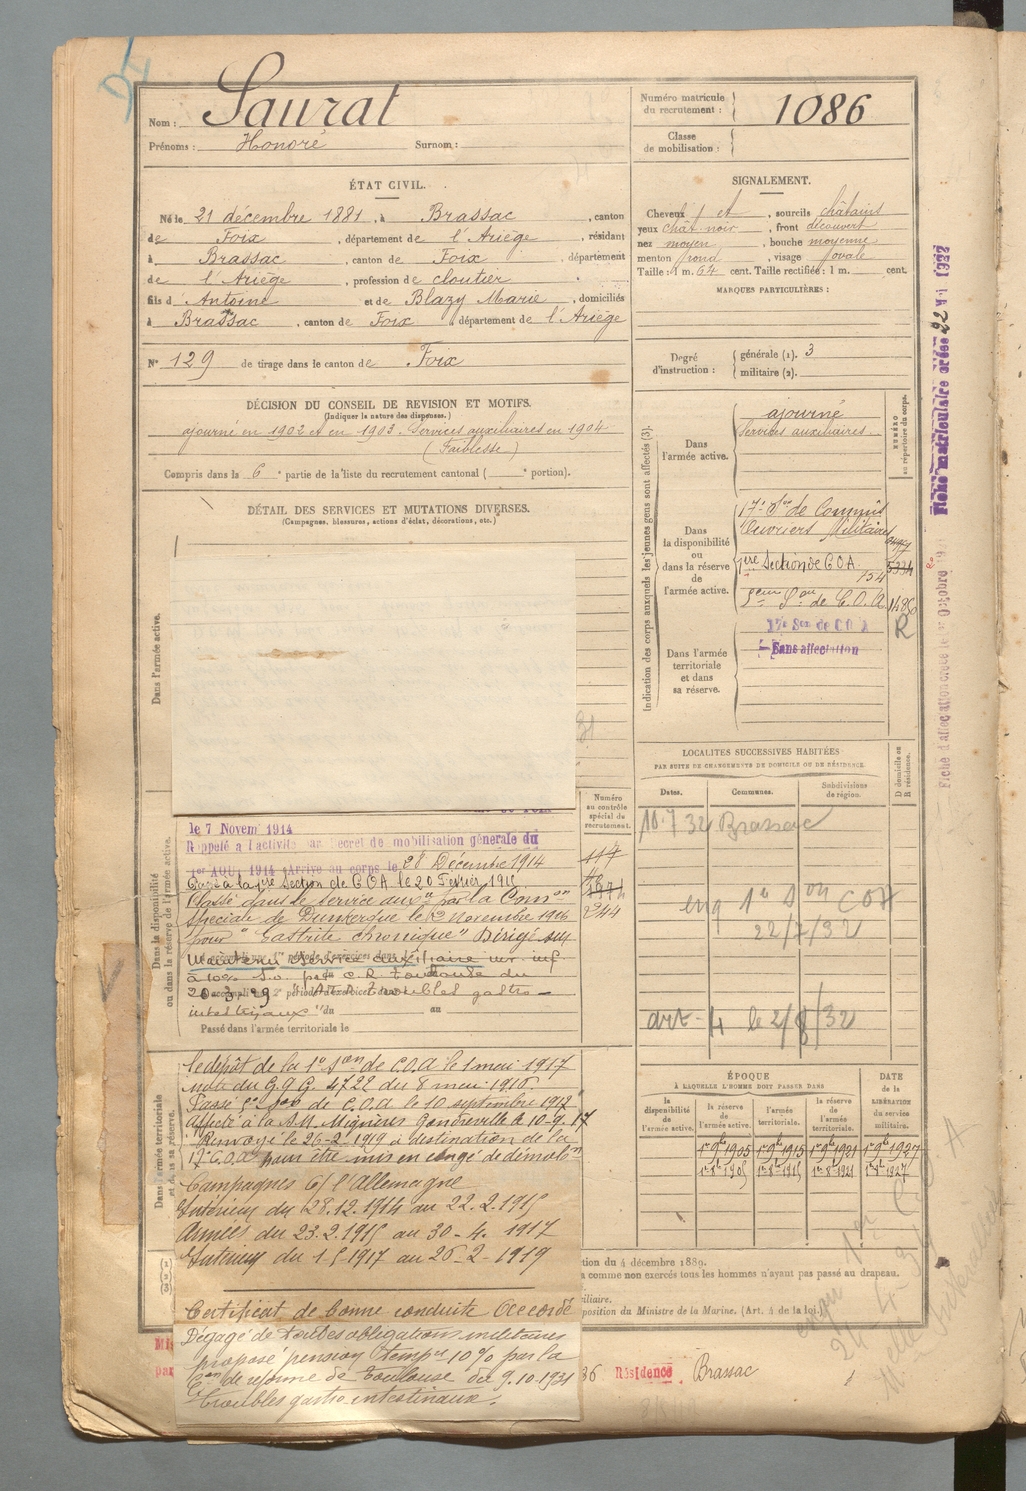 Nom : Saurat
Prénoms : Honoré Surnom :
Numéro matricule du recrutement : 1086
Classe de mobilisation :
ÉTAT CIVIL.
Né le 21 décembre 1881, à Brassac, canton
de Foix, département de l'Ariège, résidant
à Brassac, canton de Foix, département
de l'Ariège, profession de cloutier
fils d'Antoine et de Blazy Marie, domiciliés
à Brassac, canton de Foix, département de l'Ariège
N° 129 de tirage dans le canton de Foix
SIGNALEMENT.
Cheveux et, sourcils châtains
yeux chât noir, front découvert
nez moyen, bouche moyenne
menton rond, visage ovale
Taille : 1 m. 64 cent. Taille rectifiée : 1 m. cent.
MARQUES PARTICULIÈRES :
Degré d'instruction :
générale (1). 3
militaire (2).
DÉCISION DU CONSEIL DE REVISION ET MOTIFS.
(Indiquer la nature des dispenses.)
ajourné en 1902 et en 1903. Services auxiliaires en 1904
(Faiblesse)
Compris dans la 6e partie de la liste du recrutement cantonal ( e portion).
DÉTAIL DES SERVICES ET MUTATIONS DIVERSES.
(Campagnes, blessures, actions d'éclat, décorations, etc.)
Dans l'armée active.
Indication des corps auxquels les jeunes gens sont affectés (3).
NUMÉRO au répertoire du corps.
Dans l'armée active.
ajourné
Services auxiliaires.
Dans la disponibilité ou dans la réserve de l'armée active.
17e Son de Commis
Ouvriers Militaires
1ère Section de COA 5334
154
de C.O.A. 1486
R
Dans l'armée territoriale et dans sa réserve.
Son de COA
Sans affectation
LOCALITÉS SUCCESSIVES HABITÉES
PAR SUITE DE CHANGEMENTS DE DOMICILE OU DE RÉSIDENCE.
Dates. Communes. Subdivisions de région. D domicile ou R résidence.
10.7 32 Brassac
1e Son COA
22/7/32
art-4 le 2/8/32
Numéro au contrôle spécial de recrutement.
244
Dans la disponibilité ou dans la réserve de l'armée active.
le 7 Novem 1914
Rappelé à l'activité par Décret de mobilisation générale du
1er AOU 1914 Arrivé au corps le 28 Décembre 1914
Passé à la 1ère Section de COA le 20 Février 191
Classé dans le service auxre par la Comon
Spéciale de Dunkerque le Novembre 1916
pour "Gastrite chronique" Dirigé sur
Maintenu service auxiliaire inf
à 10% par C.R. Toulouse du
20.3.29 Troubles gastro-
intestinaux
du au
Passé dans l'armée territoriale le
Dans l'armée territoriale et dans sa réserve.
le dépôt de la 1e Son de C.O.A le 1 mai 1917
note du G.Q.G. 4722 du 8 mai 1916
Passé Son de C.O.A. le 10 septembre 1917
Affecté à la Mignères Gondreville le 10-9-17
Renvoyé le 26-2-1919 à destination de la
17e C.O.A pour être mis en congé de démobon
Campagnes C/ l'Allemagne
Intérieur du 28.12.1914 au 22.2.1915
Armées du 23.2.1915 au 30-4-1917
Intérieur du 1-5-1917 au 26-2-1919
Certificat de bonne conduite Accordé
Dégagé de toutes obligations militaires
proposé pension tempre 10% par la
Con de réforme de Toulouse du 9.10.1931
troubles gastro-intestinaux.
ÉPOQUE
À LAQUELLE L'HOMME DOIT PASSER DANS
la disponibilité de l'armée active. la réserve de l'armée active. l'armée territoriale. la réserve de l'armée territoriale.
DATE de la LIBÉRATION du service militaire.
1er 9bre 1905 1er 9bre 1915 1er 9bre 1921 1er 9bre 1927
1er 8bre 1905 1er 8bre 1915 1er 8bre 1921 1er 8bre 1927
tion du 4 décembre 1889.
comme non exercés tous les hommes n'ayant pas passé au drapeau.
iliaire.
position du Ministre de la Marine. (Art. 4 de la loi.)
36 Résidence Brassac
Fiche matriculaire créée 22 1922
Fiche d'affectation créée le Octobre